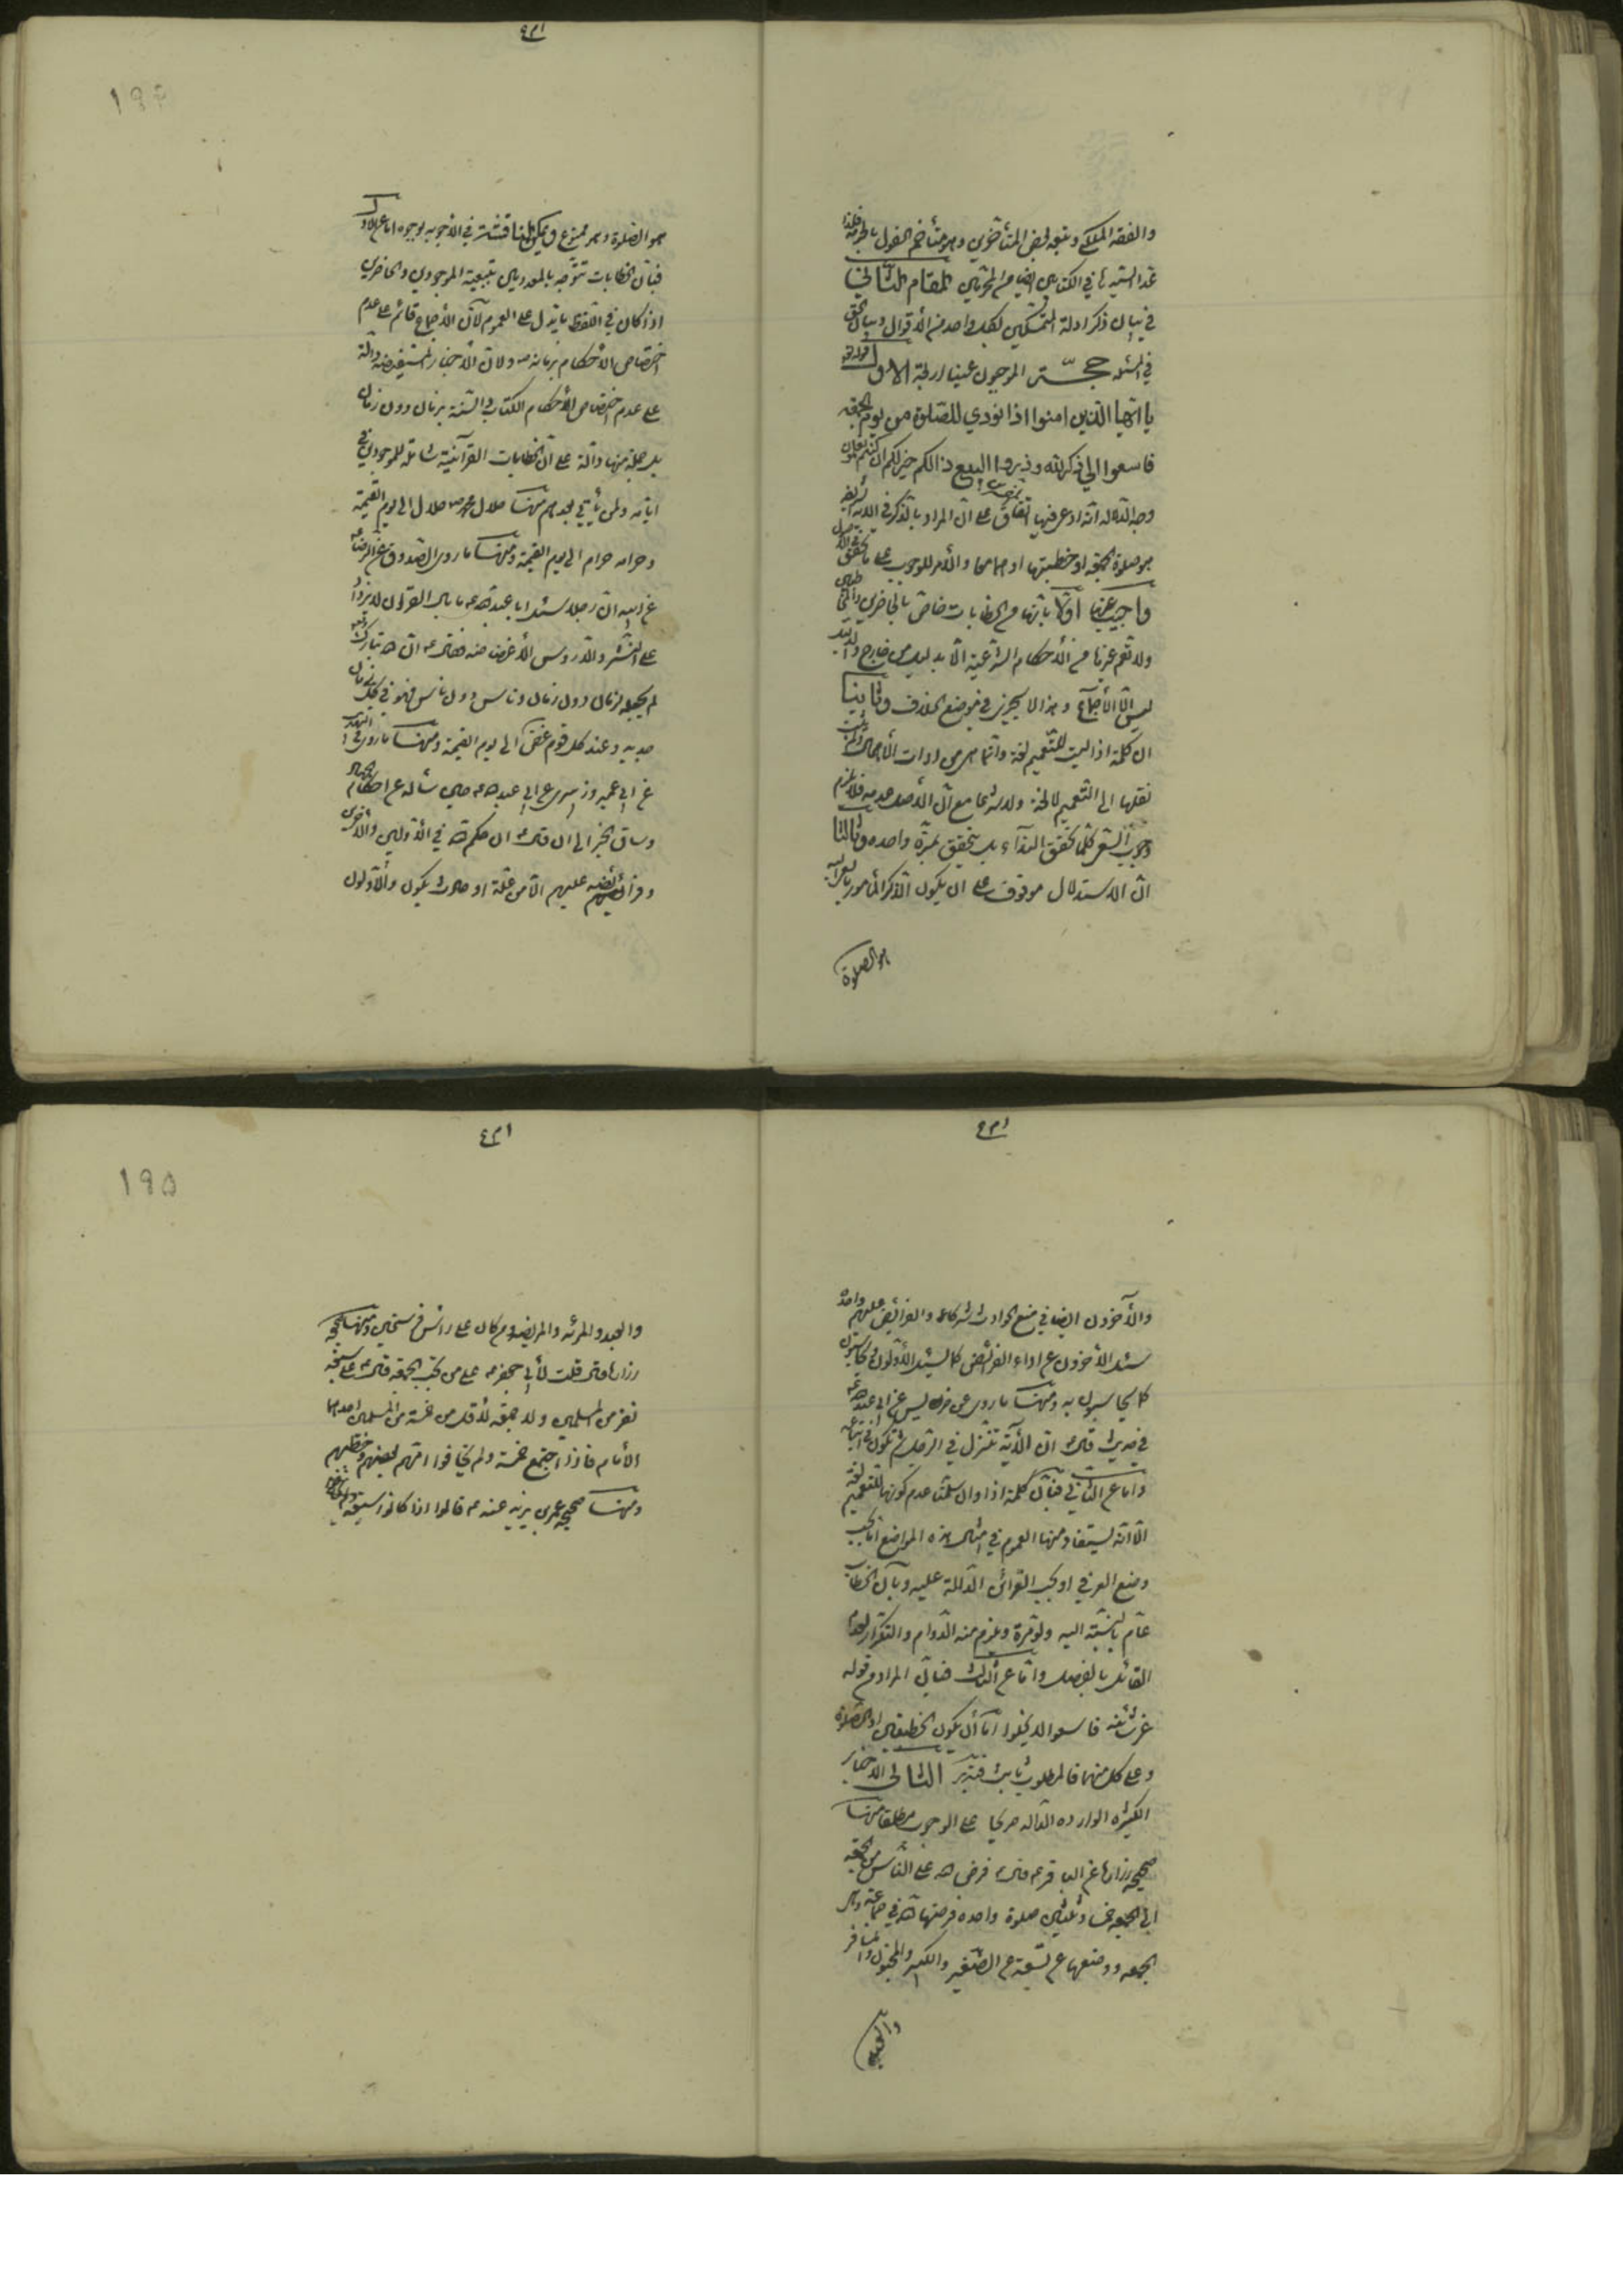 والفقه الملكي وتبعه بعض المتأخرين
في بيان ذكر ادلة المتمسكين لكل واحد من الأقوال وبيان الحق
في المسئلة حجة الموجبون عينا اربعة الاول قوله تعالى
يا ايها الذين امنوا اذا نودي للصلوة من يوم الجمعة
فاسعوا الى ذكر الله وذروا البيع ذالكم خير لكم ان كنتم تعلمون
وجه الدلالة انه اتفاق على ان المراد بالذكر في الاية
هو صلوة الجمعة او خطبتها او هما معا والأمر للوجوب على ما تحقق
واجيب عنها اولا بانها من الخطابات خاص بالحاضرين
ولا تعم غيرنا من الأحكام الشرعية الا بدليل من خارج
ليس الا الأجماع وهذا لا يجري في موضع الخلاف وثانيا
ان كلمة اذا ليست للتعميم لغة وانما هي من ادوات الأهمال
نقلها الى التعميم لا لغة ولا شرعا مع ان الأصل عدمه فلا يلزم
وجوب السعي كلما تحقق النداء بل يتحقق بمرة واحدة وثالثا
ان الاستدلال موقوف على ان يكون الذكر المأمور بالسعي اليه
هو الصلوة
١٩٤
هو الصلوة وهو ممنوع ويمكن المناقشة في الأجوبة بوجوه اما عن الاول
فبان الخطابات تتوجه بالمعدومين بتبعية الموجودين والحاضرين
اذا كان في اللفظ ما يدل على العموم لأن الأجماع قائم على عدم
اختصاص الأحكام بزمانه ص ولان الأخبار المستفيضة دالة
على عدم اختصاص الأحكام الكتاب والسنة بزمان دون زمان
بل جملة منها دالة على ان الخطابات القرآنية شاملة للموجودين في
ايامه ولمن يأتي بعدهم منها حلال محمد ص حلال الى يوم القيمة
وحرامه حرام الى يوم القيمة ومنها ما روى الصدوق عن الرضا ع
عن ابيه ان رجلا سئل ابا عبد الله ع ما بال القران لا يزداد
على النشر والدروس الا غضاضة فقال ع ان الله تبارك وتعالى
لم يجعله لزمان دون زمان وناس دون ناس فهو في كل زمان
جديد وعند كل قوم غض الى يوم القيمة ومنها ما روى في التهذيب
عن ابي عمير وزبيري عن ابي عبد الله ع حين سأله عن احكام الجهاد
وساق الخبر الى ان قال ع ان حكم الله في الأولين والأخرين
وفرائضه عليهم الا من علة او حادث يكون والأولون
والأخرون ايضا في منع الحوادث شركاء والفرائض عليهم واحدة
يسئل الأخرون عن اداء الفرائض كما يسئل الأولون ويحاسبون
كما يحاسبون به ومنها ما روى عن ابي عبد الله ع
في حديث قال ع ان الأية تنزل في الرجل ثم تكون في اتباعه
واما عن الثاني فبان كلمة اذا وان سلمنا عدم كونها للتعميم لغة
الا انه يستفاد منها العموم في امثال هذه المواضع اما بحسب
وضع العرفي او بحسب القرائن الدالة عليه وبان الخطاب
عام بالنسبة اليه ولو مرة ويلزم منه الدوام والتكرار لعدم
القائل بالفصل واما عن الثالث فبان المراد من قوله
عز شأنه فاسعوا لا يخلوا اما ان يكون الخطبة او الصلوة
وعلى كل منهما فالمطلوب ثابت فتدبر الثاني الأخبار
الكثيرة الواردة الدالة صريحا على الوجوب مطلقا منها
صحيحة زرارة عن الباقر ع قال ع فرض الله على الناس من الجمعة
الى الجمعة خمسا وثلثين صلوة واحدة فرضها الله في جماعة وهي
الجمعة ووضعها عن تسعة عن الصغير والكبير والمجنون والمسافر
والعبد
١٩٥
والعبد والمرئة والمريض ومن كان على رأس فرسخين ومنها صحيحة
زرارة قال قلت لأبي جعفر ع على من تجب الجمعة قال ع على سبعة
نفر من المسلمين ولا جمعة لأقل من خمسة من المسلمين احدهما
الأمام فاذا اجتمع خمسة ولم يخافوا امهم بعضهم وخطبهم
ومنها صحيحة عمر بن يزيد عنه ع قالوا اذا كانوا سبعة